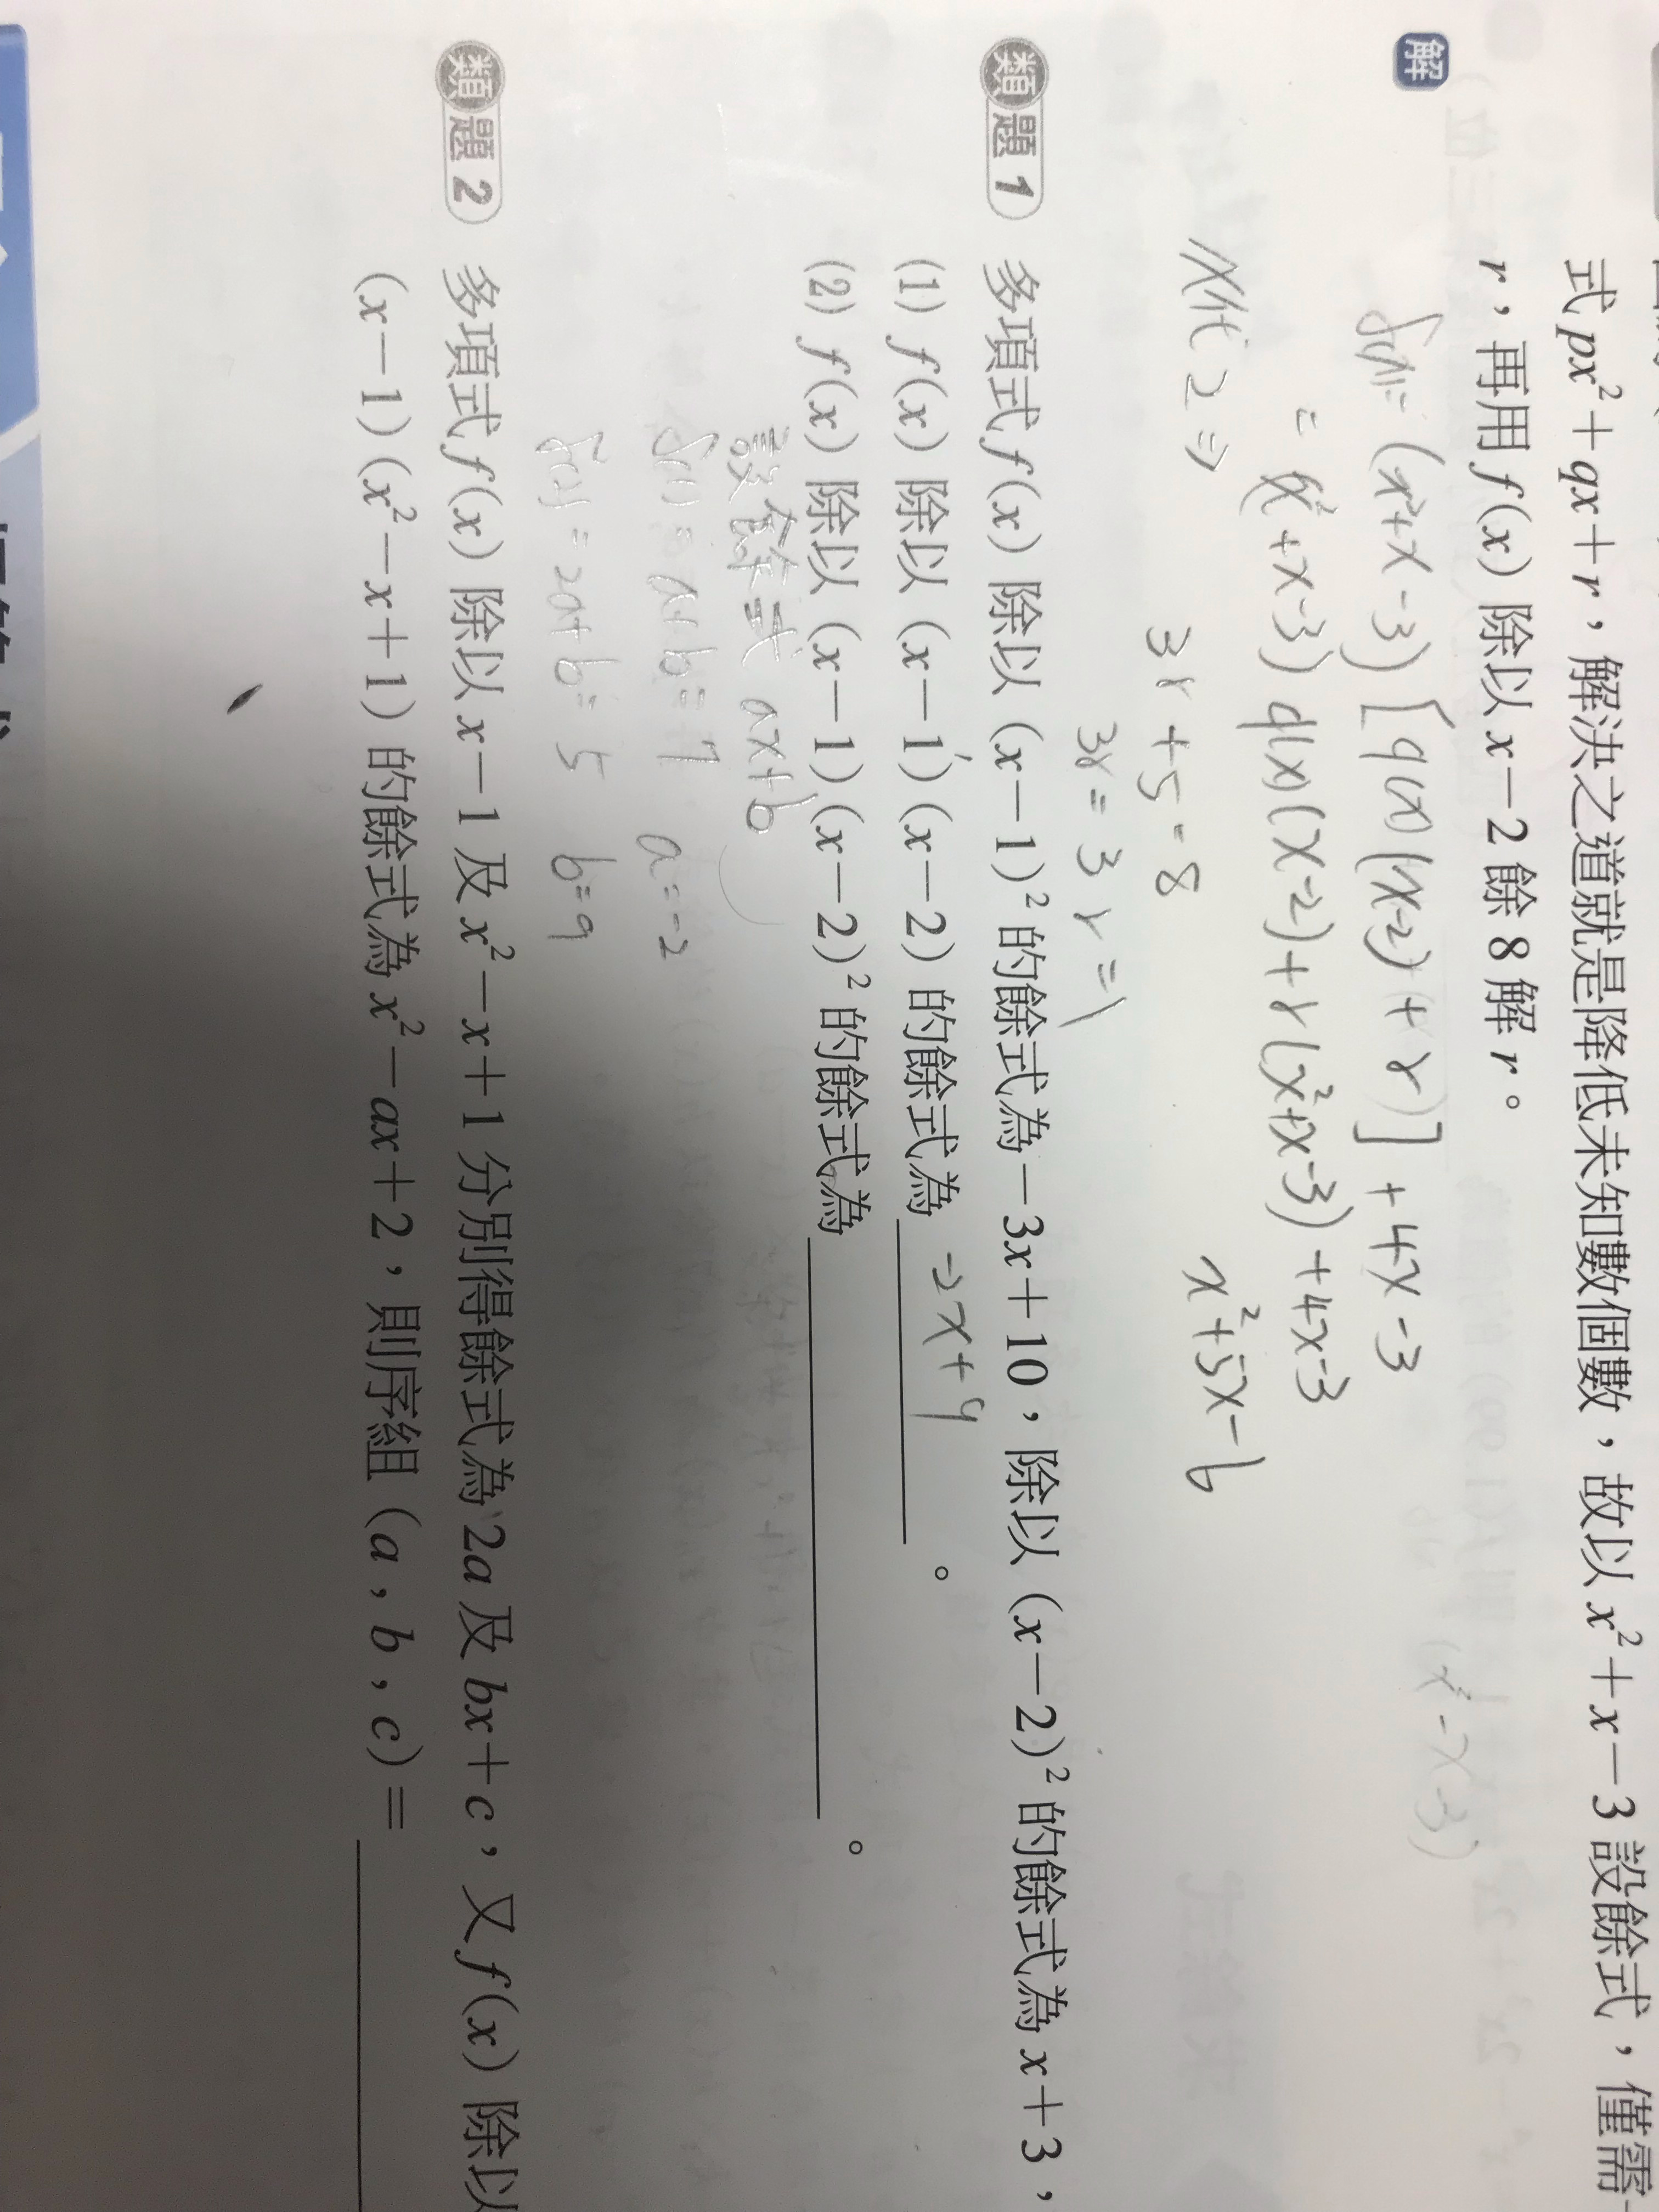 式 px²+qx+r，解決之道就是降低未知數個數，故以 x²+x−3 設餘式，僅需
r，再用 f(x) 除以 x−2 餘 8 解 r。
解
f(x)= (x²+x-3)[q(x)(x-2)+r]+4x-3
(x²-x-3)
= (x²+x-3)q(x)(x-2)+r(x²+x-3)+4x-3
x代2⇒
x²+5x-6
3r+5=8
3r=3 r=1
類題1 多項式 f(x) 除以 (x−1)² 的餘式為 −3x+10，除以 (x−2)² 的餘式為 x+3，
(1) f(x) 除以 (x−1)(x−2) 的餘式為 -2x+9 。
(2) f(x) 除以 (x−1)(x−2)² 的餘式為 。
設餘式 ax+b
f(1)=a+b=7 a=-2
f(2)=2a+b=5 b=9
類題2 多項式 f(x) 除以 x−1 及 x²−x+1 分別得餘式為 2a 及 bx+c，又 f(x) 除以
(x−1)(x²−x+1) 的餘式為 x²−ax+2，則序組 (a，b，c)=